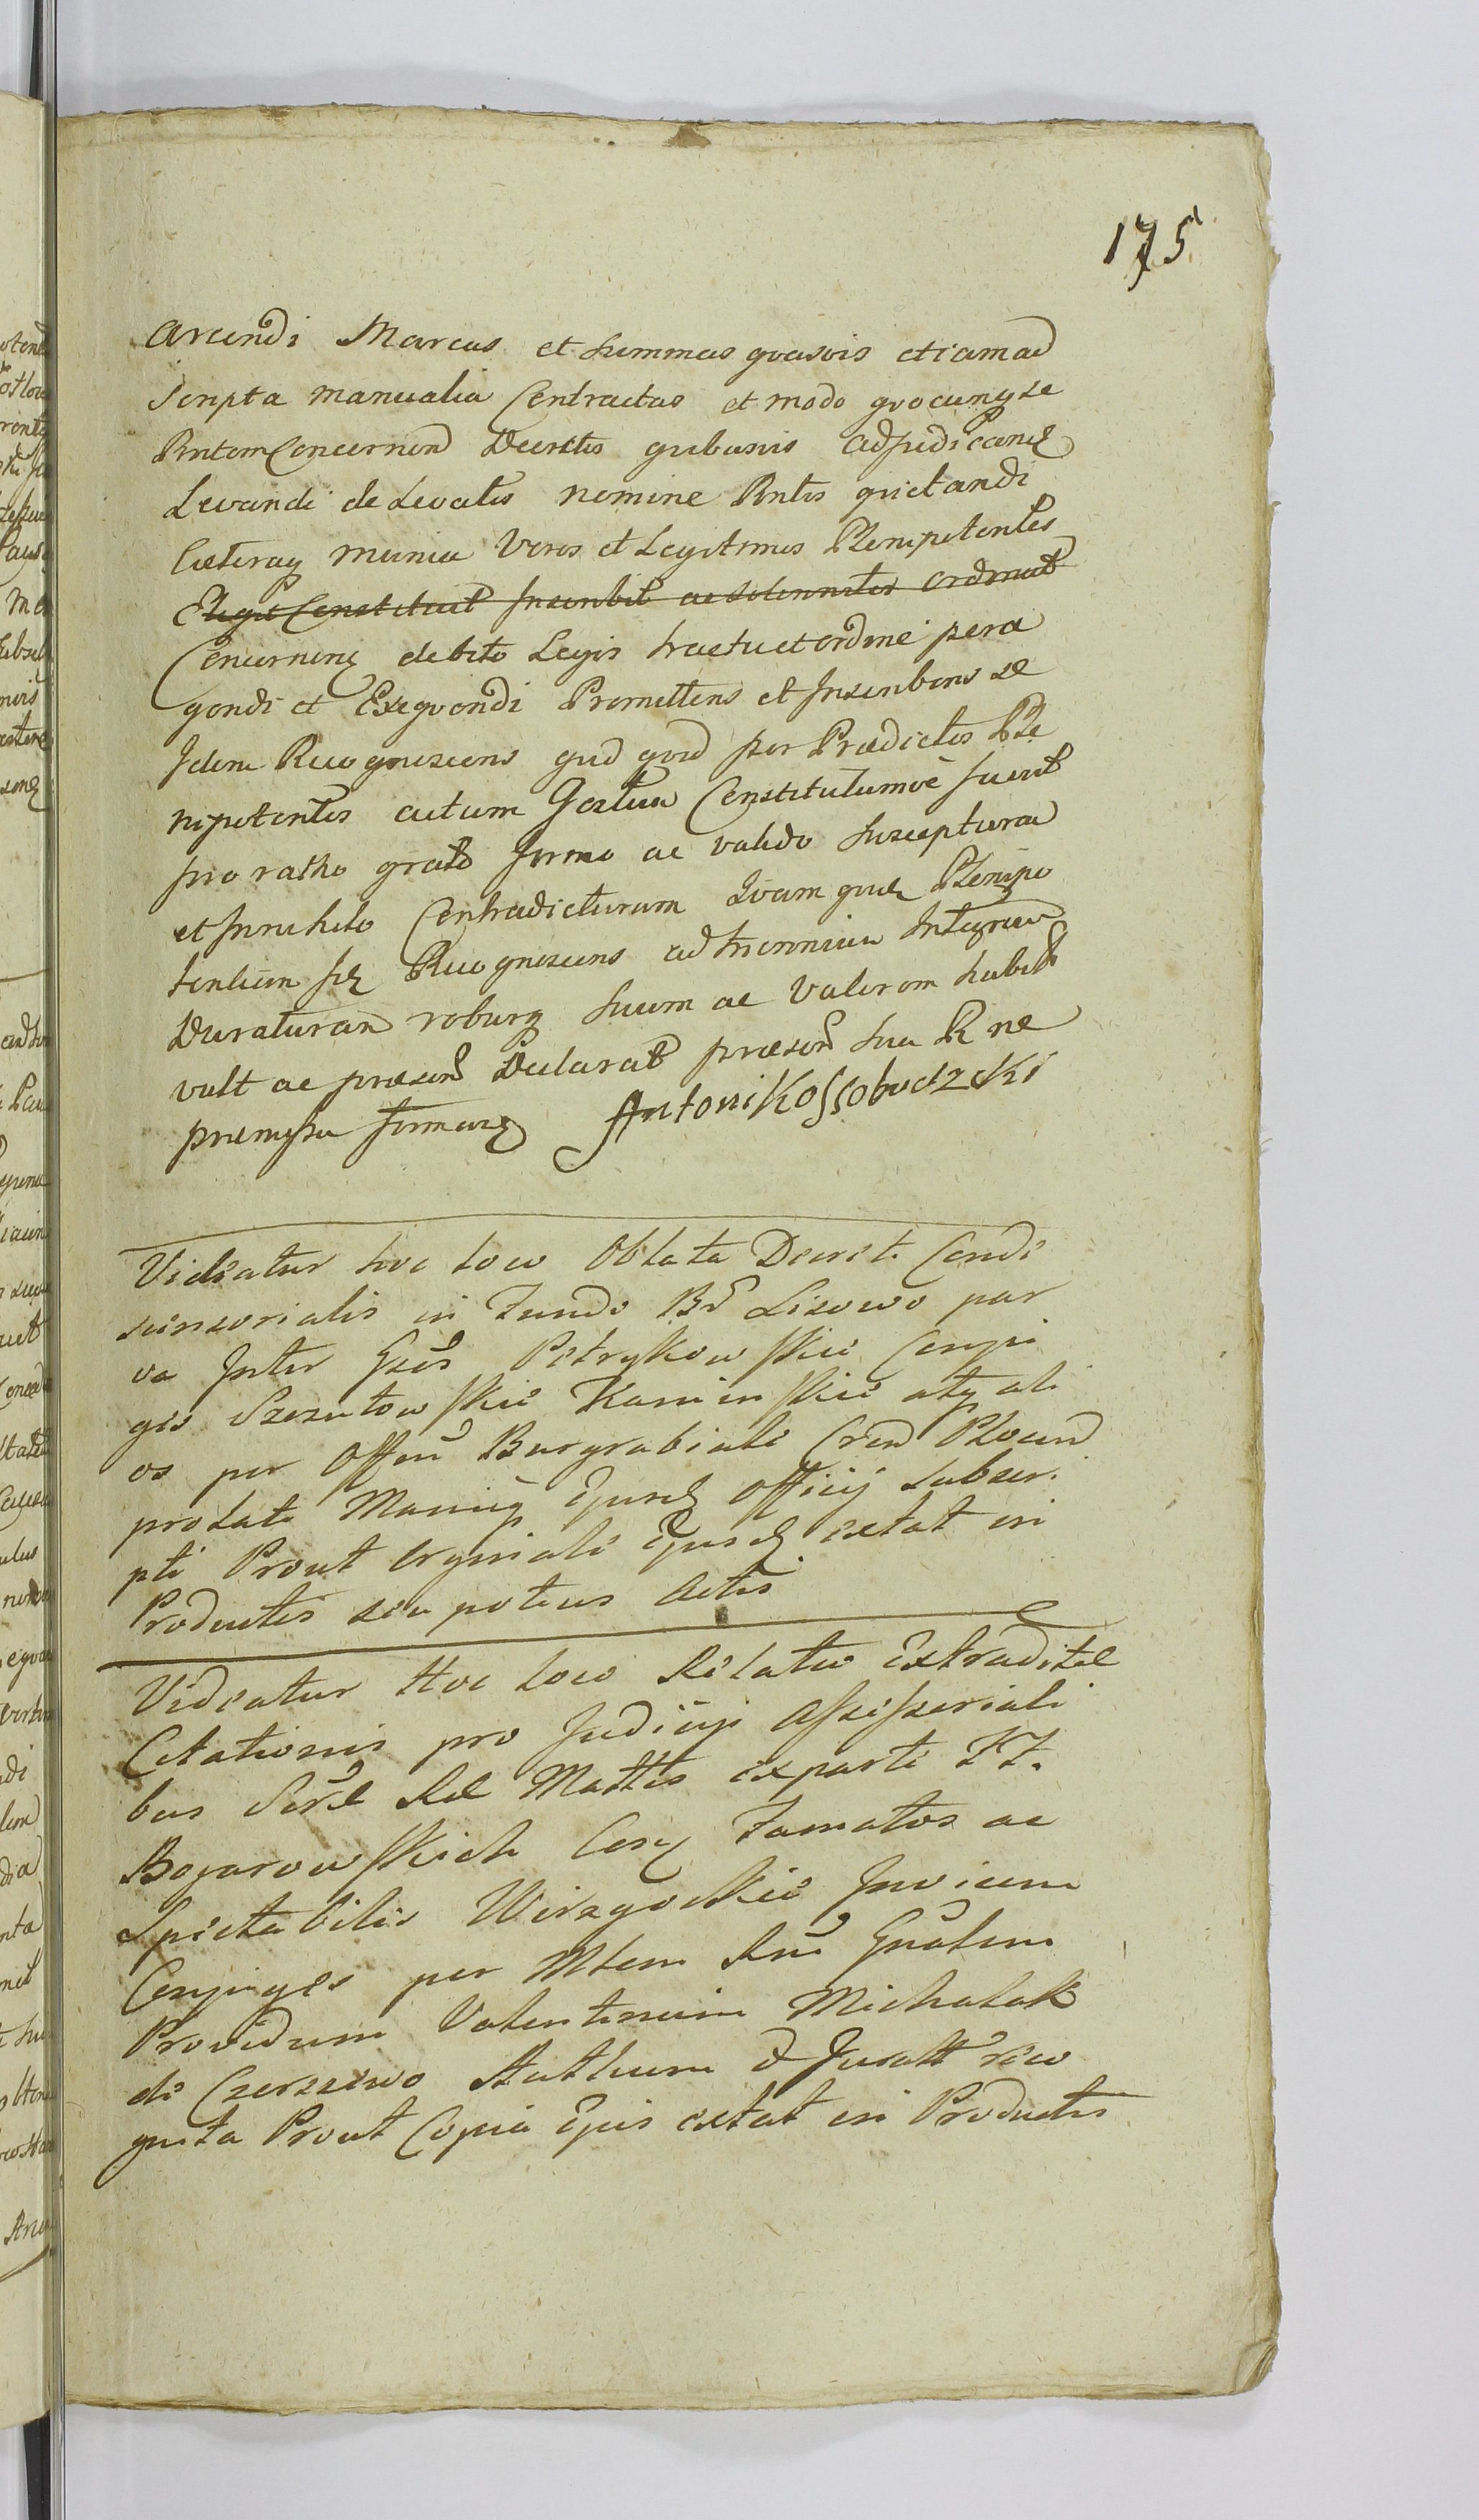 175
Arcendi Marcas et Summas quasvis etiam ad
Scripta manualia Contractus et modo quocunqze
Pntem Concernen Decretis quibusvis adjudicang
Levandi de Levatis nomine Pntis quietandi
Caeteraq munia Veros et Legitimos Plenipotentes
Elegit Constituit Inscribit ac Solenniter ordinat
Concerneng debito Legis tractu et ordine pera
gendi et Exequendi Promittens et Inscribens se
Idem Recognoscens quid quid per Praedictos Ple
nipotentes actum Gestum Constitutumve fuerit
pro ratho grato firmo ac valido Suscepturum
et In nihilo Contradicturum Quam quidem Plenipo
tentiam Recognoscens ad triennium Integrum
Duraturam roburq Suum ac Valorem habere
vult ac praesen Declarat praesen Sua R ne
premissa firmans Antoni Kossobudzcki
Videatur hoc loco Oblata Decreti Condi
scensorialis in Fundo Br Lisowo par
va Inter Gsos Petrykowskie Conju
ges Szczutowskie Kaminskie atq ali
os per Offm Burgrabiale Cren Plocen
prolati Manuq Ejusd officij Subscri
pti Prout orginale Ejusd extat in
Productis seu potius Actis
Videatur Hoc loco Relatio Extraditae
Citationis pro Judicijs Assessoriali
bus Srae Rae Mattis ex parte FF.
Bogarowskich Conj Famatos ac
Spectabilis Wirzgockie Invicem
Conjuges per Mtem Rni Gnalem
Providum Valentinum Michalak
de Czerzewo Authum & Juratt reco
gnita Prout Copia Ejus extat in Productis